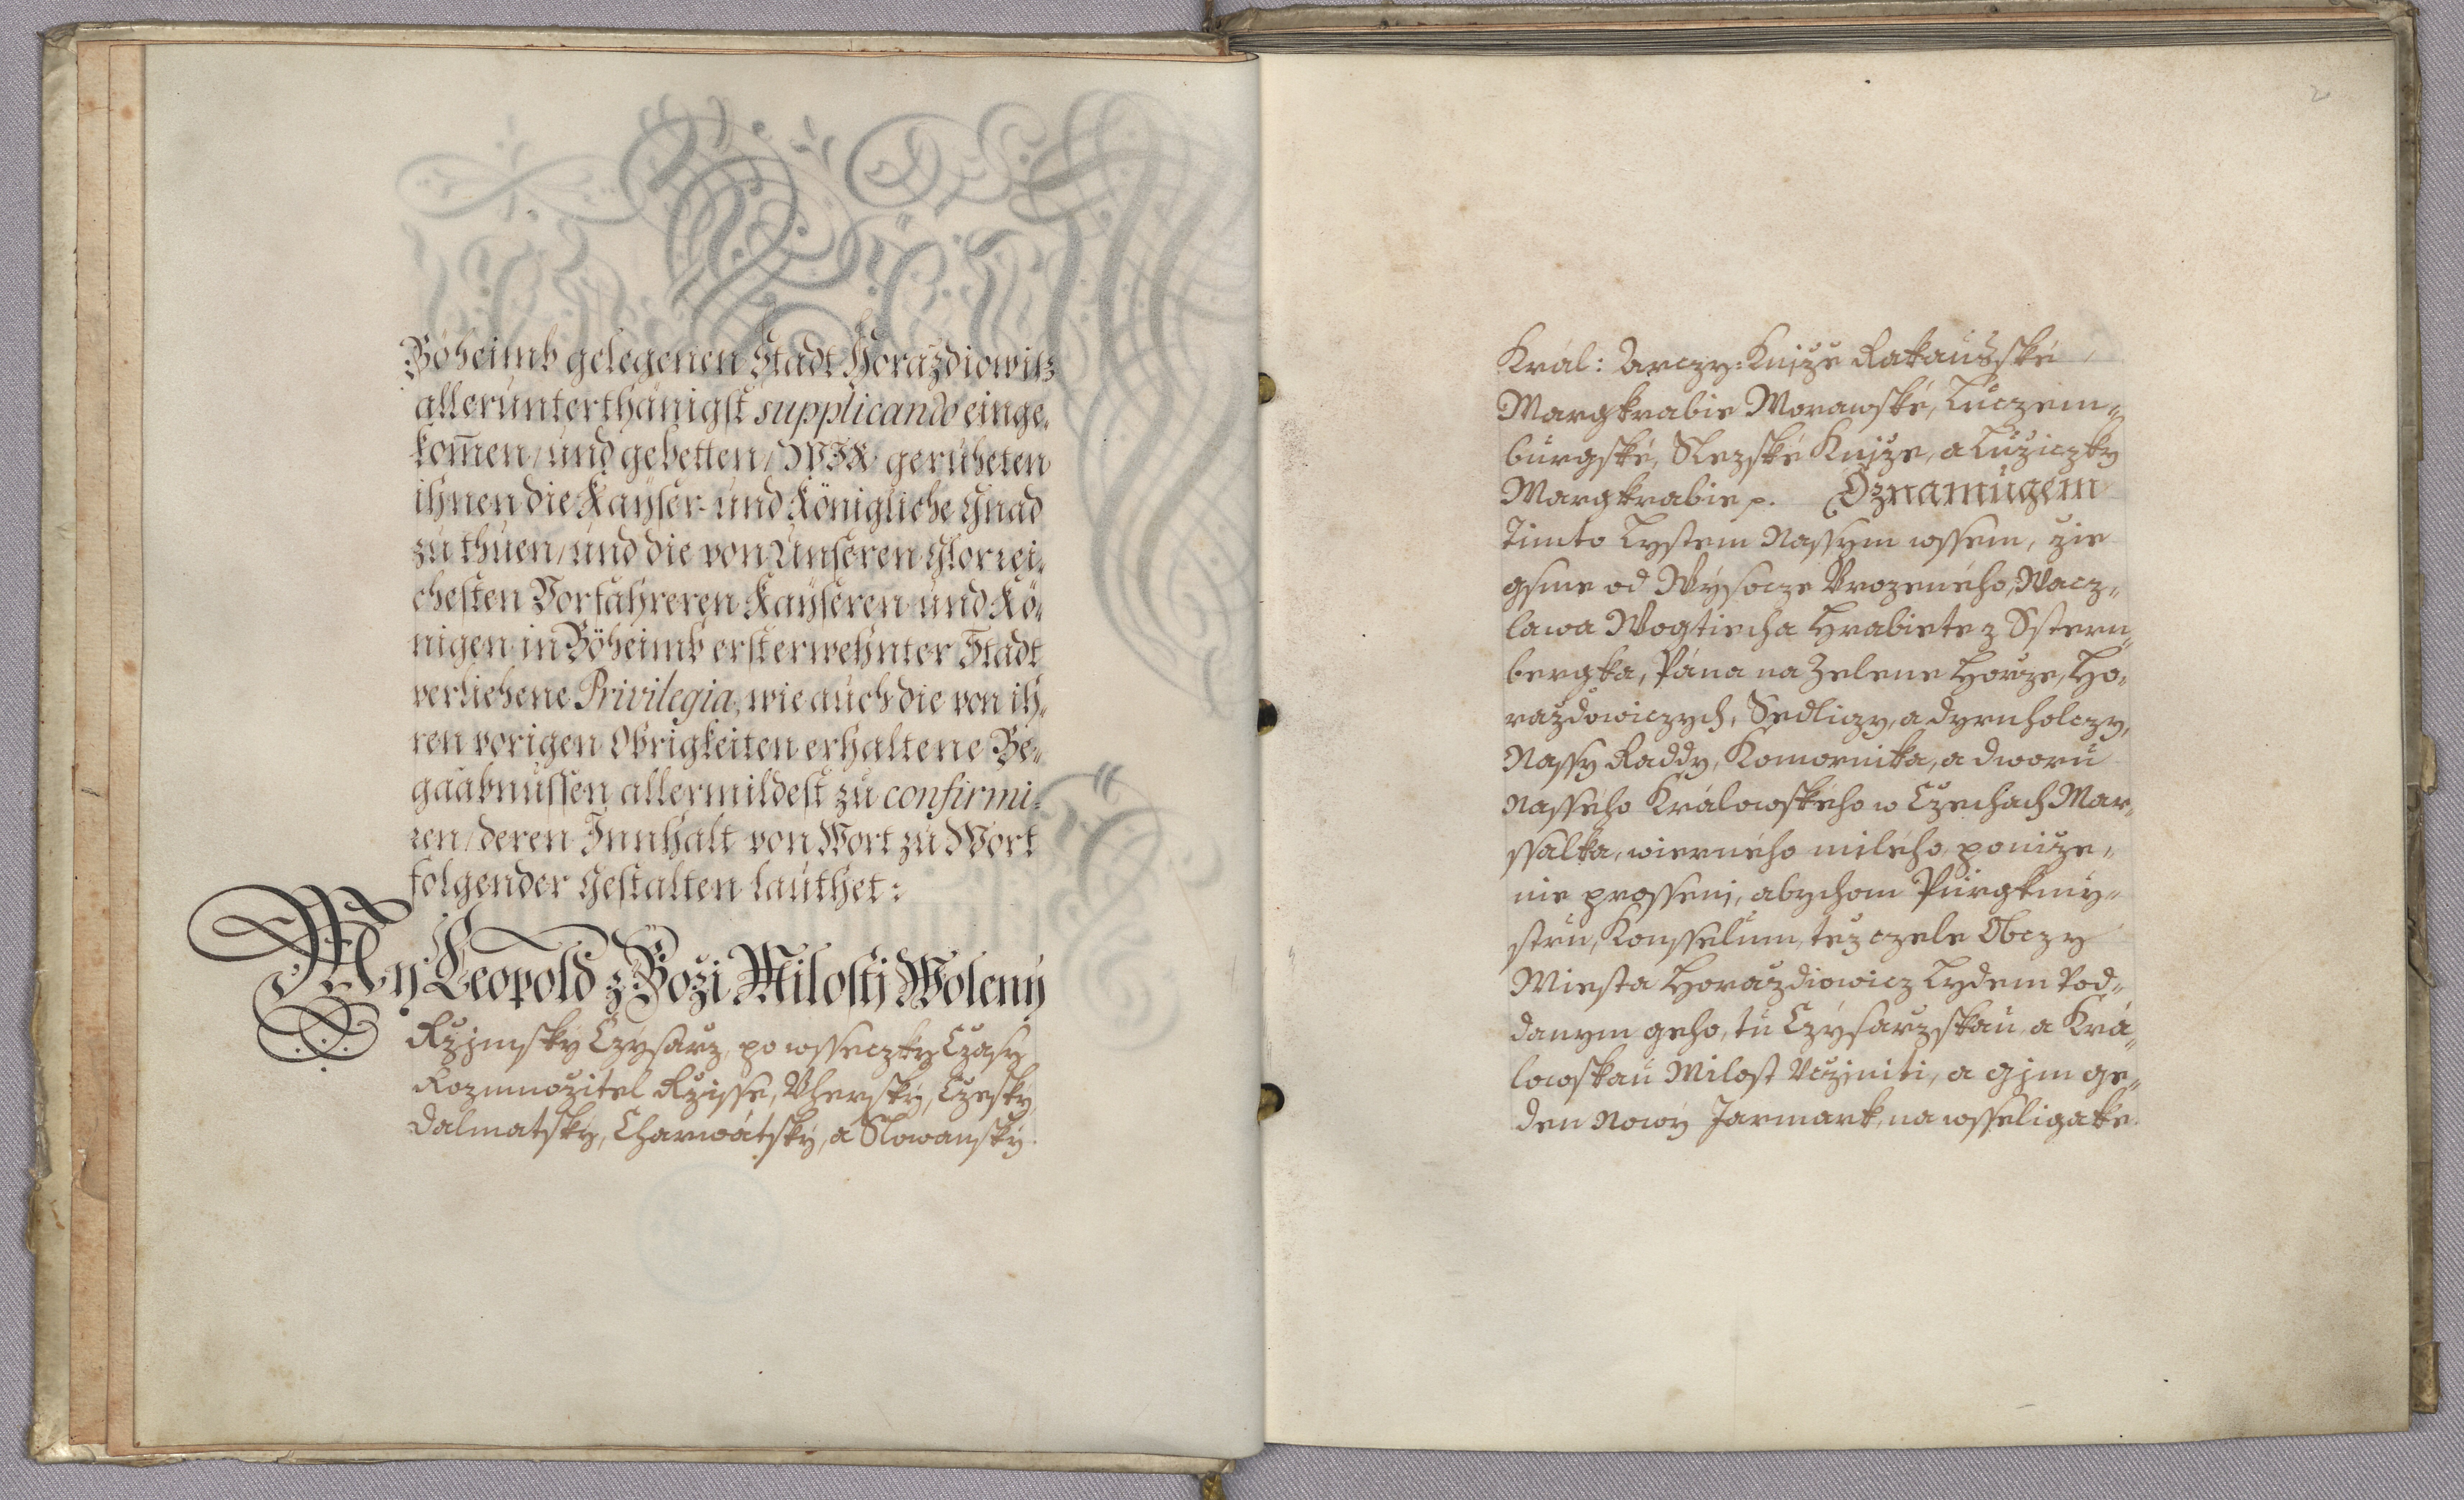 Böheimb gelegenen Stadt Horazdiowitz
allerunterthänigst supplicando einge-
kom̄en/ und gebetten/ WIR geruheten
ihnen die Kayser- und Königliche Gnad
zu thuen/ und die von Unseren Glorrei-
chesten Vorfahreren Kayseren und Kö-
nigen in Böheimb ersterwehnter Stadt
verliehene Privilegia, wie auch die von ih-
ren vorigen Obrigkeiten erhaltene Be-
gaabnussen allermildest zu confirmi-
ren/ deren Innhalt von Wort zu Wort
folgender Gestalten lauthet:
My Leopold z Boži Milosti Wolený
Rzjmský Czýsarz, po wsseczky Czasy
Rozmnožitel Rzisse, Vherský, Czeský
Dalmatský, Charwátský, a Slowanský
2
Král: Arczy: Knjže Rakauské,
Margkrabie Morawské, Luczem-
burgské, Slezské Knjže, a Lužiczky
Margkrabie p. Oznamugem
Timto Lystem Nassym wssem, žie
gsme od Wýsocze Vrozeného, Wacz-
lawa Wogtiecha Hrabiete z Sstern-
bergka, Pána na Zelene Horze, Ho-
raždowiczych, Sedliczy, a dyrnholczy,
Nassy Raddy, Komornika, a dworu
Nasseho Králowského w Czechach Mar-
ssalka, wierného milého, poniže-
nie prosseni, abychom Purgkmy-
stru, Konsselum, též czele Obczy
Miesta Horaždiowicz Lydem Pod-
danym geho, tu Czýsarzskau, a Krá-
lowskau Milost Vcžiniti, a gim ge-
den Nowý Jarmark, na wsseligake